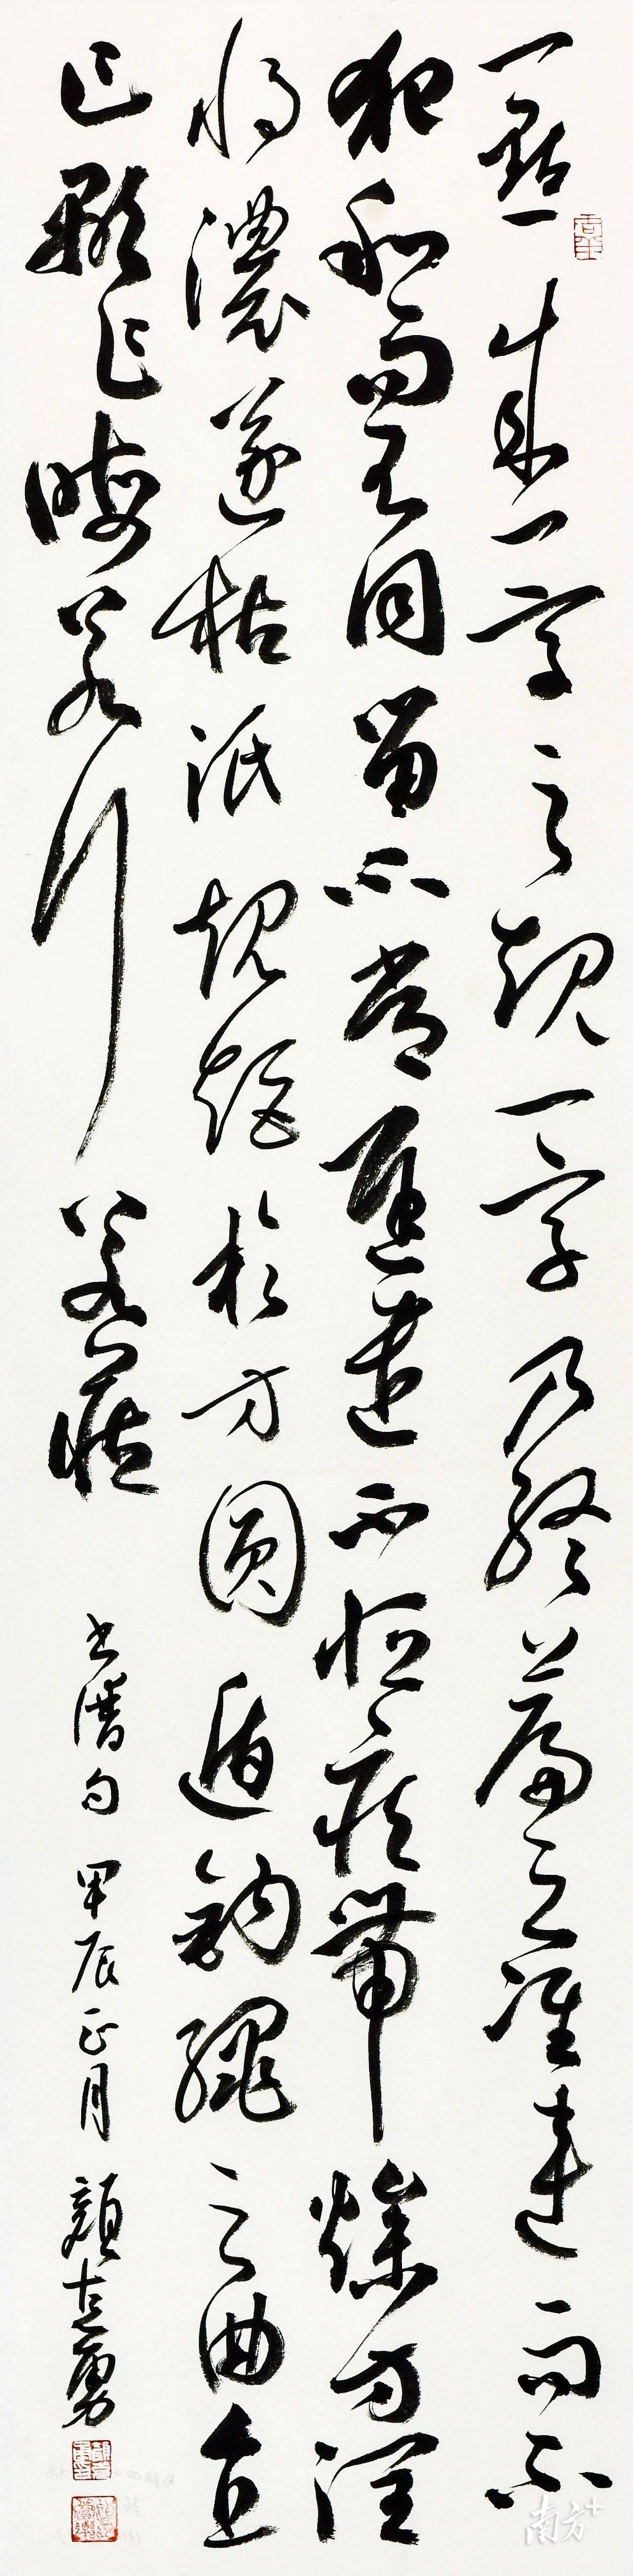 一點成一字之規一字乃終篇之准違而不
犯和而不同留不常遲遣不恒疾帶燥方潤
將濃遂枯泯規矩於方圓遁鉤繩之曲直
乍顯乍晦若行若藏
書譜句 甲辰正月 顏勇
南方+